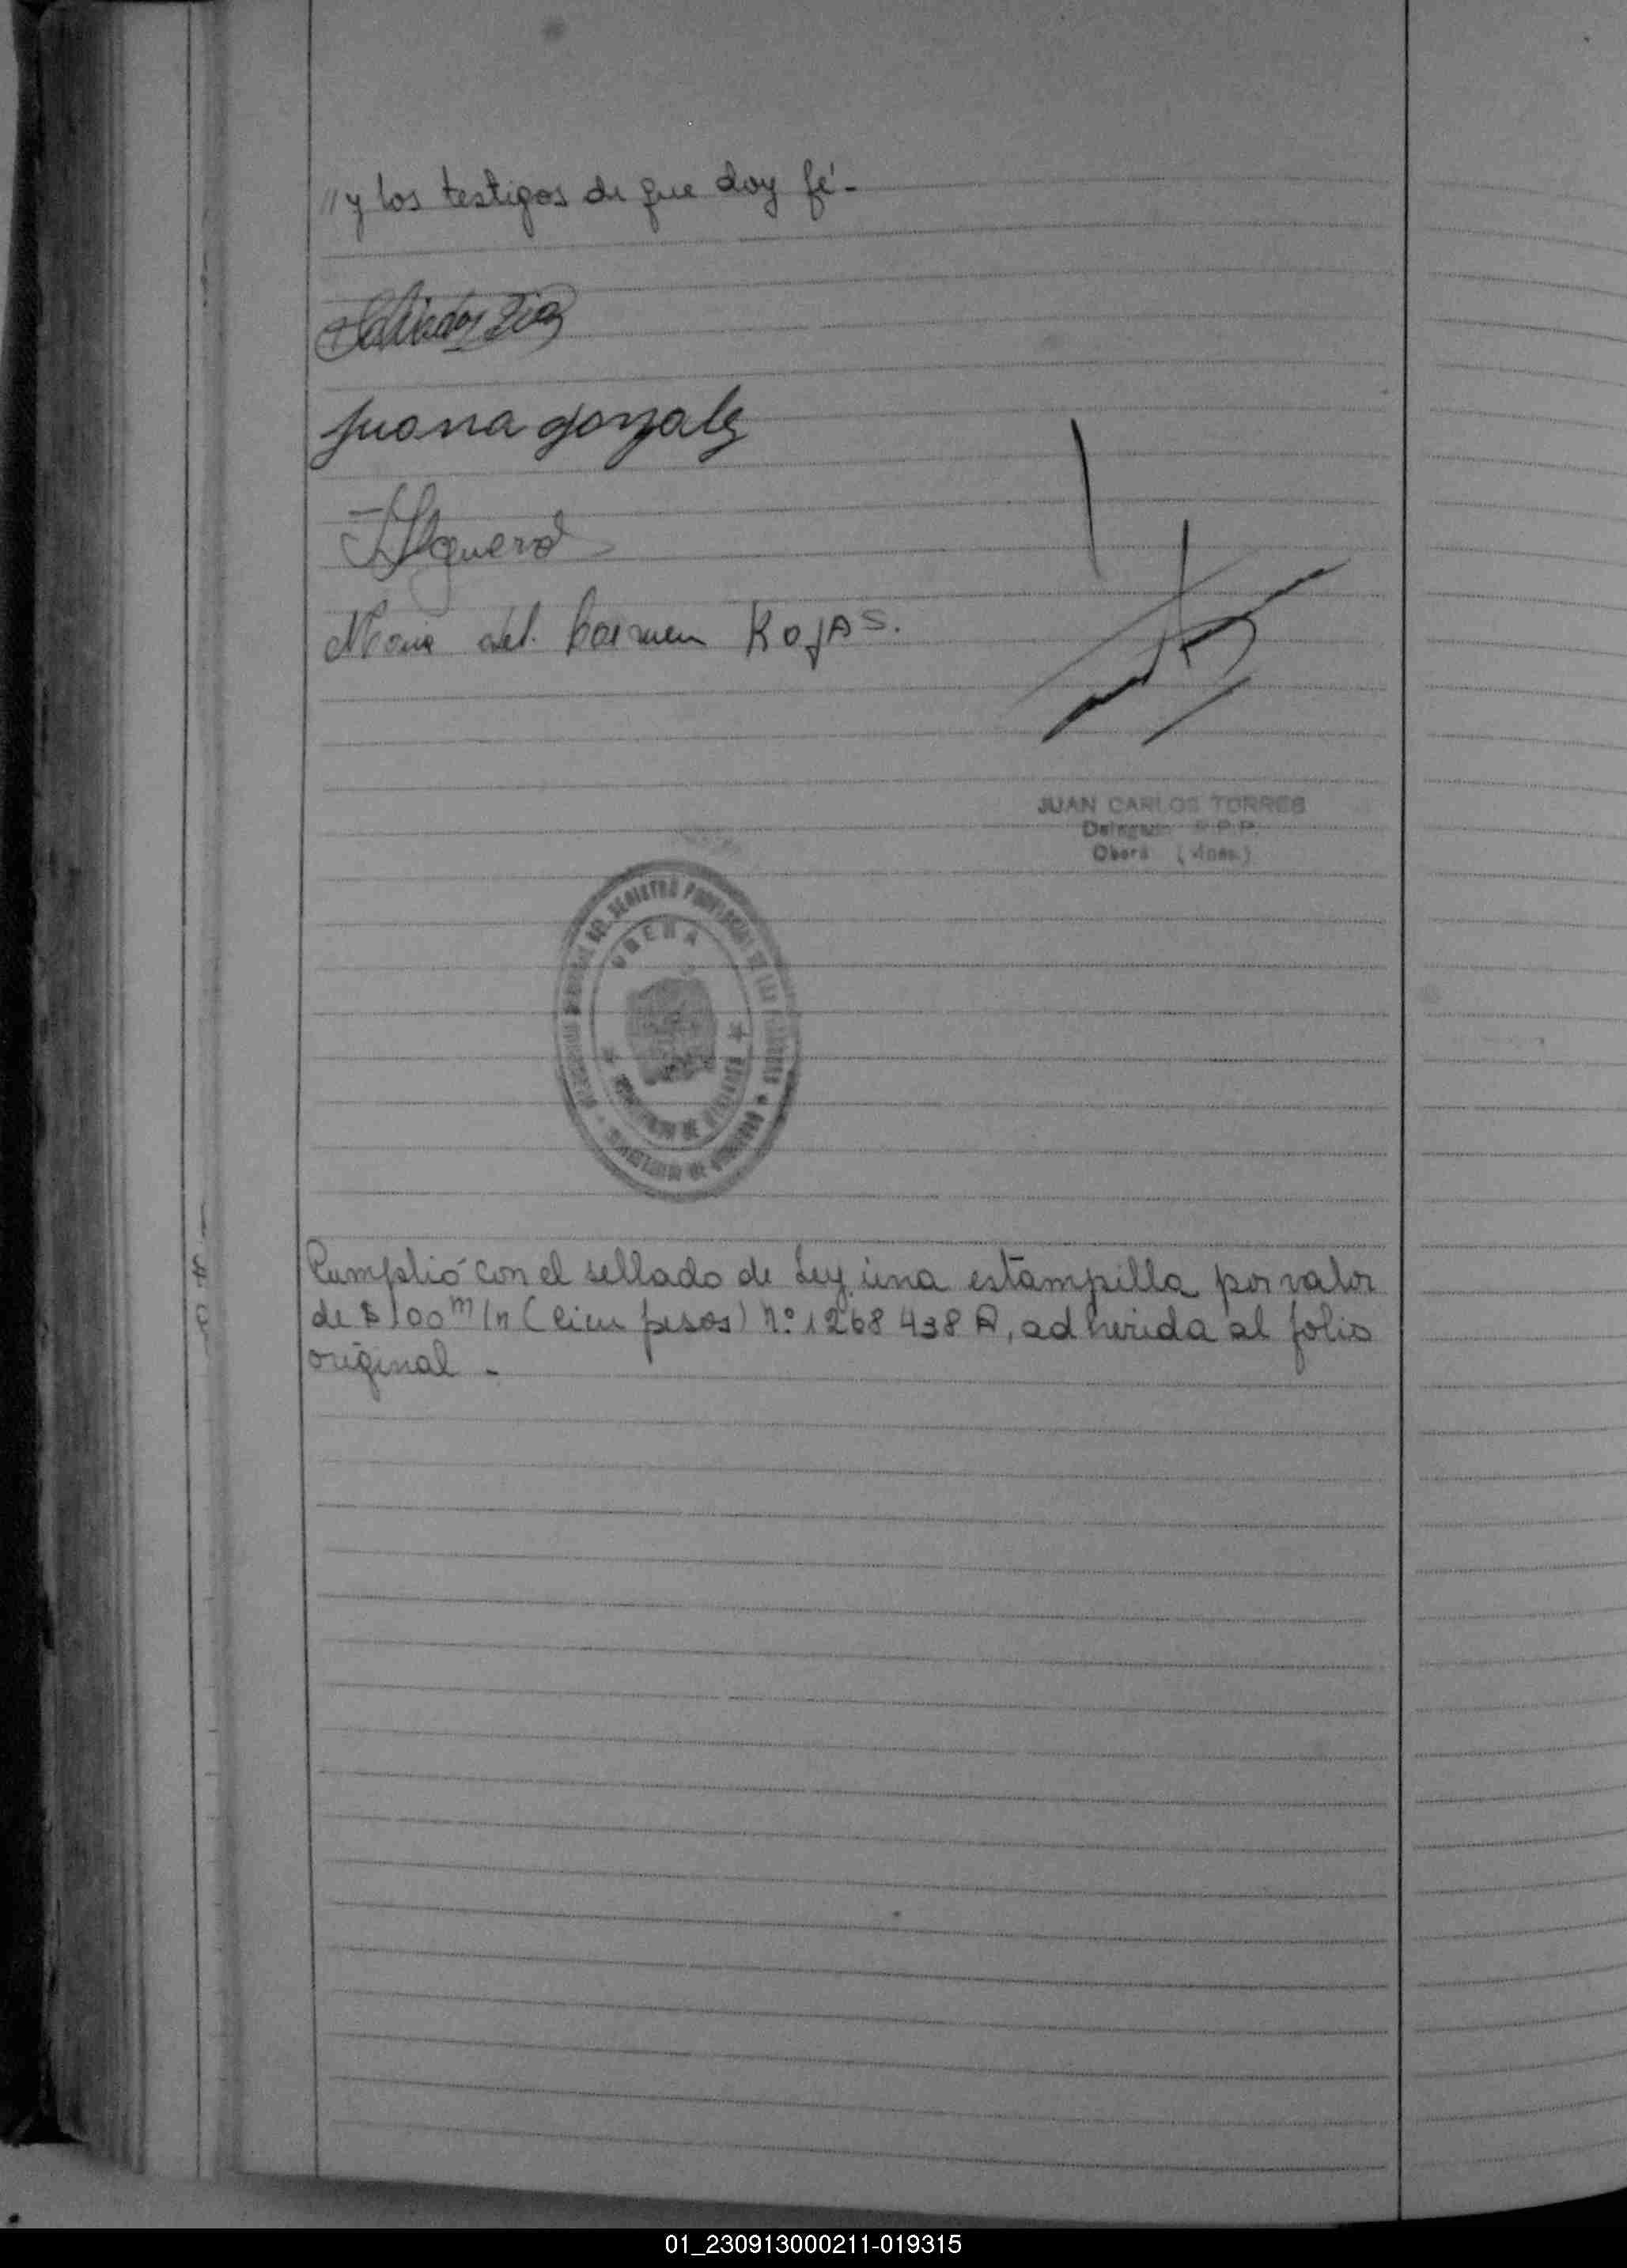 // y los testigos de que doy fé-
Juana gonzalez
Maria del Carmen ROJAS.
JUAN CARLOS TORRES
Delegado R.P.P.
Oberá (Mnes.)
REGISTRO PROVINCIAL DE LAS PERSONAS
OBERA
Cumplió con el sellado de Ley una estampilla por valor
de $ 100 m/n (cien pesos) n.º 1268438 A, adherida al folio
original -
01_230913000211-019315